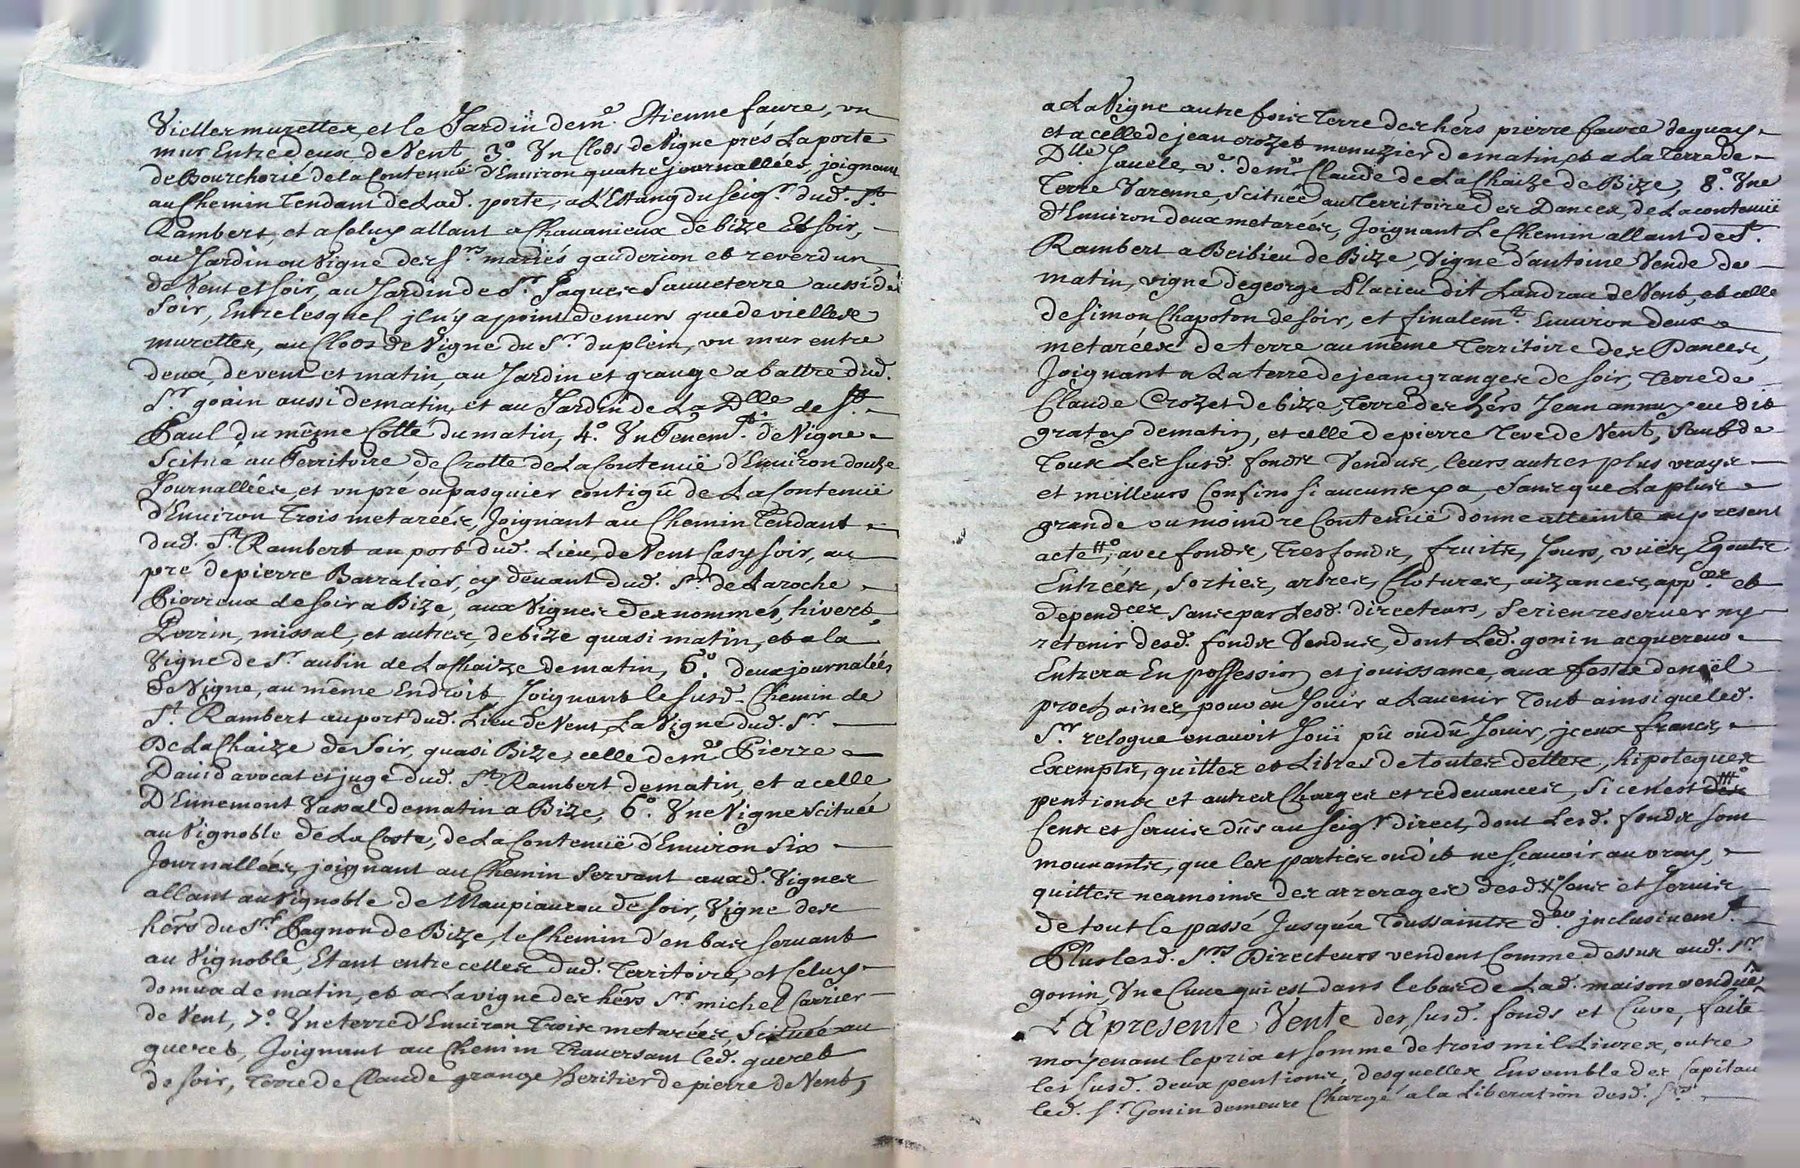 Vielles murettes, et le Jardin de mᵉ. Etienne faure, un
mur Entredeux de Vent, 3º. Un Cloos de Vigne prés La porte
de Bourchorié de la Contenuë d'Environ quatre journallées, joignant
au Chemin Tendant de Lad. porte, a L'Estang du Seigʳ. dud. Sᵗ.
Rambert, et a Celuy allant a Chauanieux de bize Et soir,
au Jardin ou Vigne des Sʳˢ. mariés gauderion et reverdun
de Vent et soir, au Jardin de Sʳ. Jaques Sauueterre aussi de
soir, Entre lesquels jl n'y a point de murs que de vielles
murettes, au Cloos de Vigne du Sʳ. duplein, un mur entre
deux, de vent et matin, au Jardin et grange a battre dud.
Sʳ. gonin aussi de matin, et au Jardin de La Dˡˡᵉ de Sᵗ.
Paul du même Cotté du matin, 4º. Un Tenemᵗ. de Vigne
Scitué au Territoire de Crotte de La Contenuë d'Environ douze
Journallées, et un pré ou pasquier contigü de La Contenuë
d'Environ Trois metarées, Joignant au Chemin Tendant
dud. Sᵗ. Rambert au port dud. Lieu de Vent Casy soir, au
pré de pierre Barralier, cy devant dud. Sʳ. de Laroche
Pierreux de soir a Bize, aux Vignes des nommés, hivert
Perrin, missal, et autres de bize quasi matin, et a la
Vigne de Sʳ. aubin de La Chaize de matin, 5º. deux journalées
de Vigne, au même Endroit Joignant le susd. Chemin de
Sᵗ. Rambert au port dud. Lieu de Vent, La Vigne dud. Sʳ.
De La Chaize de soir quasi Bize, celle de mᵉ. Pierre
David avocat et juge dud. Sᵗ. Rambert de matin, et a celle
D'Ennemont Vassal de matin a Bize, 6º. Une Vigne scituée
au Vignoble de La Coste, de La Contenuë d'Environ Six
Journallées, joignant au Chemin Servant auxd. Vignes
allant au Vignoble de Maupiaurau de soir, Vigne des
hérs du Sʳ. Pagnon de Bize, le Chemin d'en bas servant
au Vignoble, Etant entre celles dud. Territoire, et Celuy
de matin, et a La vigne des hérs Sʳ. michel Carrier
de Vent, 7º. Une terre d'Environ Trois metarées, Scituée au
queret, Joignant au Chemin Traversant led. queret
de soir, Terre de Claude grange heritier de pierre de Vent,
a La Vigne autre fois Terre des hérs pierre faure de
et a celle de jean crozet menuzier de matin, et a La Terre de
Dˡˡᵉ. Jauele vᵉ. de mᵉ. Claude de La Chaize de Bize, 8º. Une
Terre Varenne, Scituée au Territoire des Dances, de La contenuë
d'Environ deux metarées, Joignant Le Chemin allant de Sᵗ.
Rambert a Beibieu de Bize, Vigne d'antoine Vende de
matin, vigne de george Placieu dit Landrau de Vent, et celle
de Simon Chapoton de soir, et finalemᵗ. Environ deux
metarées de terre au même Territoire des Dances,
Joignant a La terre de jean granger de soir, Terre de
Claude Crozet de bize, Terre des hérs Jean annuyeu dit
gratay de matin, et celle de pierre Teve de Vent, Sauf de
Tous Les susd. fonds Vendus, leurs autres plus vrays
et meilleurs Confins si aucuns y a, Sans que La plus
grande ou moindre Contenuë donne atteinte au present
acte, avec fonds, Tresfonds, fruits, Jours, vuës, Egouts
Entrées, sorties, arbres, Clotures, aizances, appᶜᵉˢ et
dependᶜᵉˢ sans par Lesd. directeurs, se rien reserver ny
retenir desd. fonds Vendus, dont Led. gonin acquereur
Entrera En possession et jouissance, aux festes de noël
prochaines, pour en Joüir a Lavenir Tout ainsi que led.
Sʳ. relogue en auoit Joüi pû ou dû Joüir, jceux francs,
Exempts, quittes et Libres de toutes dettes, hipoteques
pentions et autres Charges et redevances, si ce n'est des
Cens et servis dûs au seigʳ. direct, dont Lesd. fonds sont
mouvants, que les parties ont dit ne scavoir au vray,
quittes neamoins des arrerages desd. Cens et servis
de tout le passé Jusqu'a Toussaints dᵉʳ. jnclusivemᵗ.
Plus lesd. Sʳˢ. Directeurs vendent comme dessus aud. Sʳ.
gonin, Une Cuve qui est dans le bas de Lad. maison vendue,
La presente Vente des susd. fonds et Cuve, faite
moyenant le prix et somme de trois mil Livres, outre
les susd. deux pentions, desquelles Ensemble des Capitau
led. Sʳ. Gonin demeure Chargé a la Liberation desd. Sʳˢ.